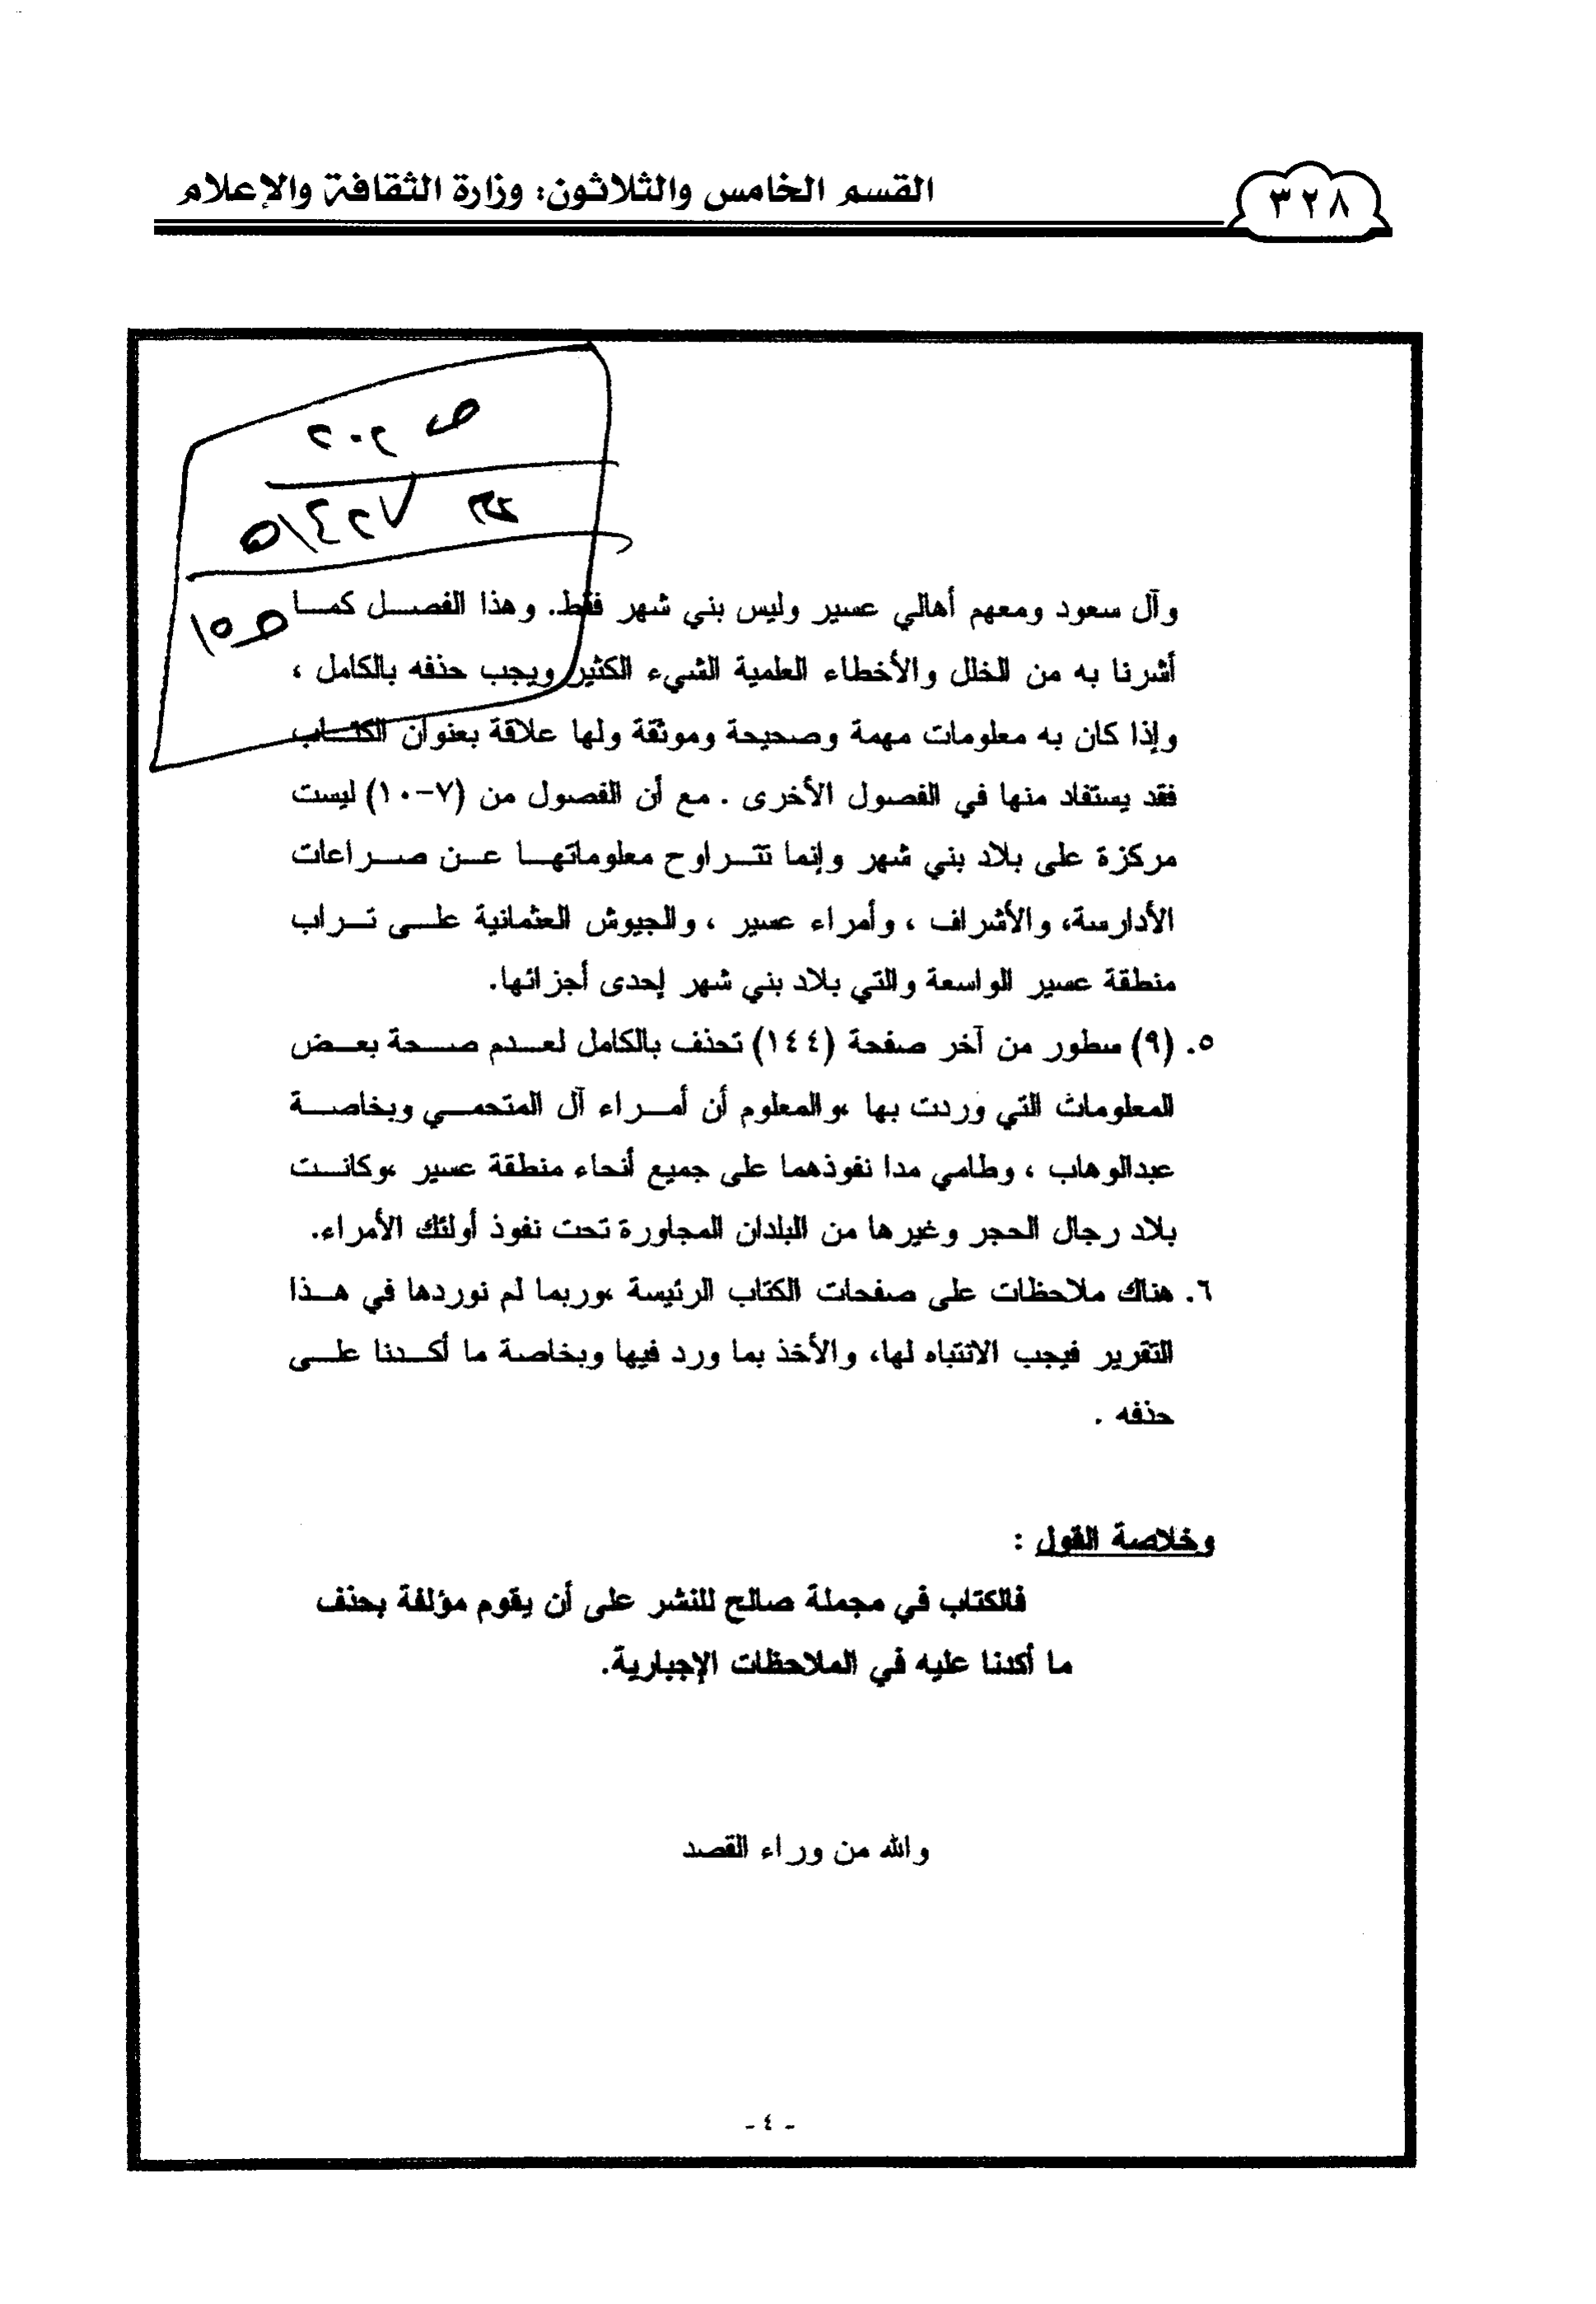 ٣٢٨
القسم الخامس والثلاثون: وزارة الثقافة والإعلام
ص ٢٠٢
ص ١٥
وآل سعود ومعهم أهالي عسير وليس بني شهر فقط. وهذا الفصل كما
أشرنا به من الخلل والأخطاء العلمية الشيء الكثير ويجب حذفه بالكامل ،
وإذا كان به معلومات مهمة وصحيحة وموثقة ولها علاقة بعنوان الكتاب
فقد يستفاد منها في الفصول الأخرى . مع أن الفصول من (٧-١٠) ليست
مركزة على بلاد بني شهر وإنما تتراوح معلوماتها عن صراعات
الأدارسة، والأشراف ، وأمراء عسير ، والجيوش العثمانية على تراب
منطقة عسير الواسعة والتي بلاد بني شهر إحدى أجزائها.
٥. (٩) سطور من آخر صفحة (١٤٤) تحذف بالكامل لعدم صحة بعض
المعلومات التي وردت بها ،والمعلوم أن أمراء آل المتحمي وبخاصة
عبدالوهاب ، وطامي مدا نفوذهما على جميع أنحاء منطقة عسير ،وكانت
بلاد رجال الحجر وغيرها من البلدان المجاورة تحت نفوذ أولئك الأمراء.
٦. هناك ملاحظات على صفحات الكتاب الرئيسة ،وربما لم نوردها في هذا
التقرير فيجب الانتباه لها، والأخذ بما ورد فيها وبخاصة ما أكدنا على
حذفه .
وخلاصة القول :
فالكتاب في مجملة صالح للنشر على أن يقوم مؤلفة بحذف
ما أكدنا عليه في الملاحظات الإجبارية.
والله من وراء القصد
- ٤ -